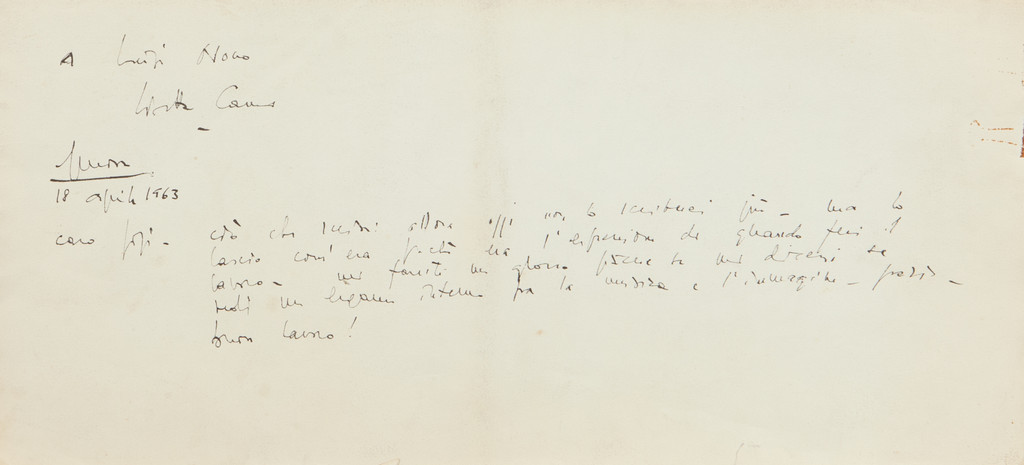 A Luigi Nono
Lisetta Carmi
18 aprile 1963
caro Gigi - ciò che scrissi allora oggi non lo scriverei più - ma lo
lascio com'era perché era l'espressione di quando feci il
lavoro - mi faresti un piacere se mi dicessi se
vedi un legame interno fra la musica e l'immagine - grazie -
buon lavoro!